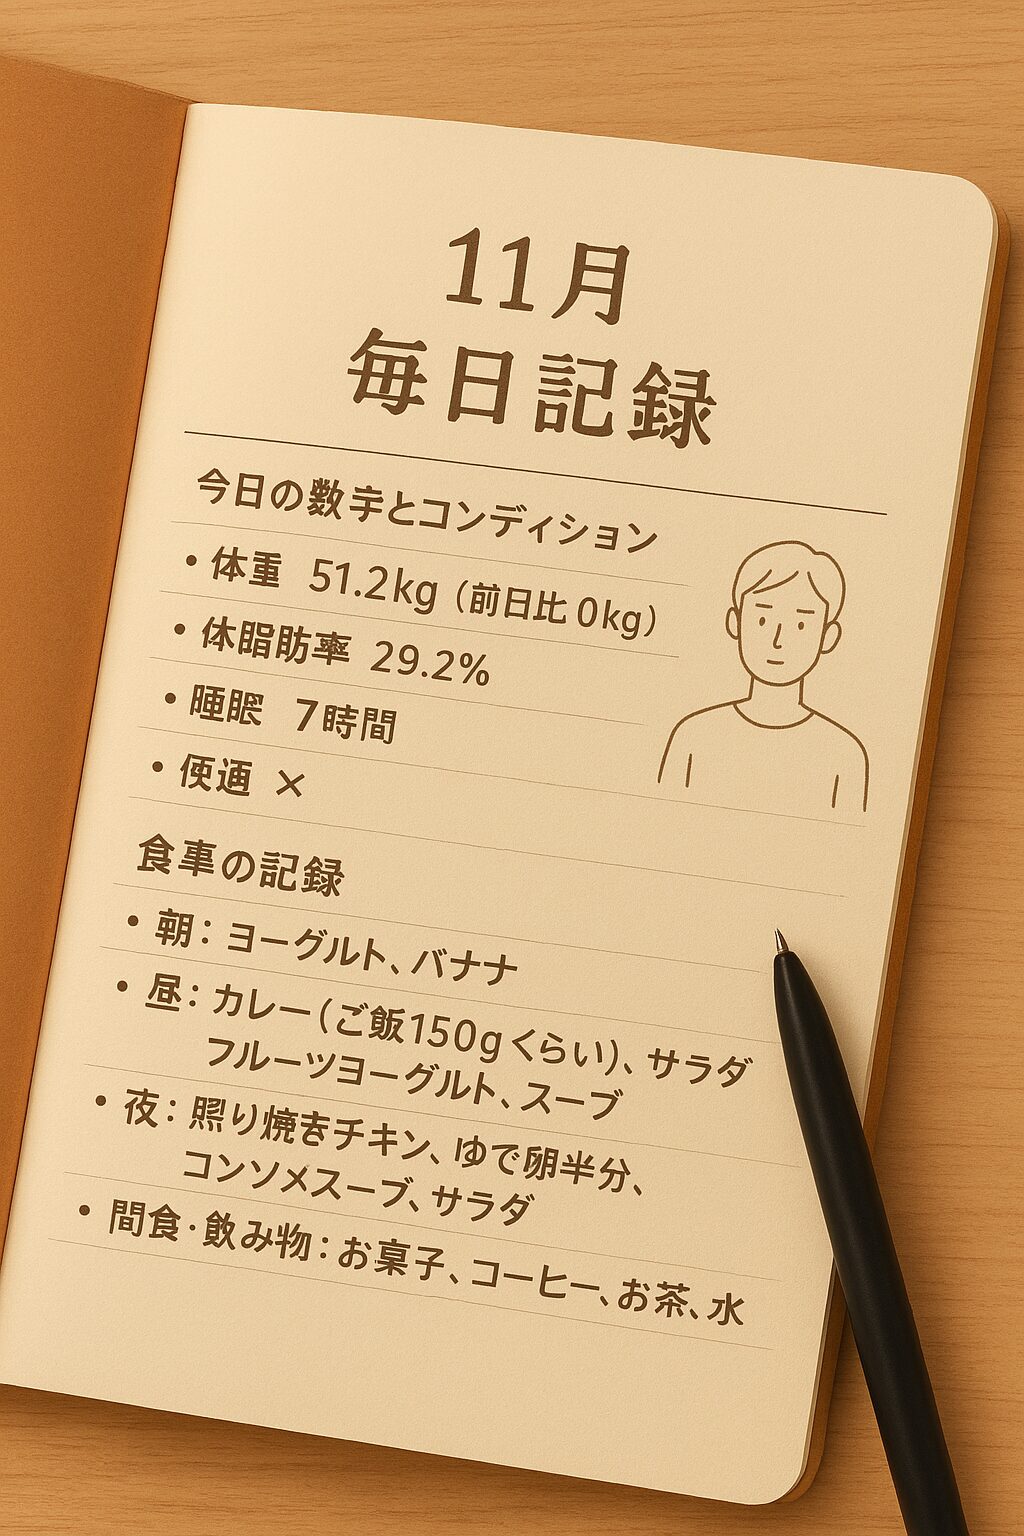 11月
毎日記録
今日の数字とコンディション
・体重 51.2kg (前日比 0kg)
・体脂肪率 29.2%
・睡眠 7時間
・便通 ×
食事の記録
・朝：ヨーグルト、バナナ
・昼：カレー(ご飯150gくらい)、サラダ
フルーツヨーグルト、スープ
・夜：照り焼きチキン、ゆで卵半分、
コンソメスープ、サラダ
・間食・飲み物：お菓子、コーヒー、お茶、水